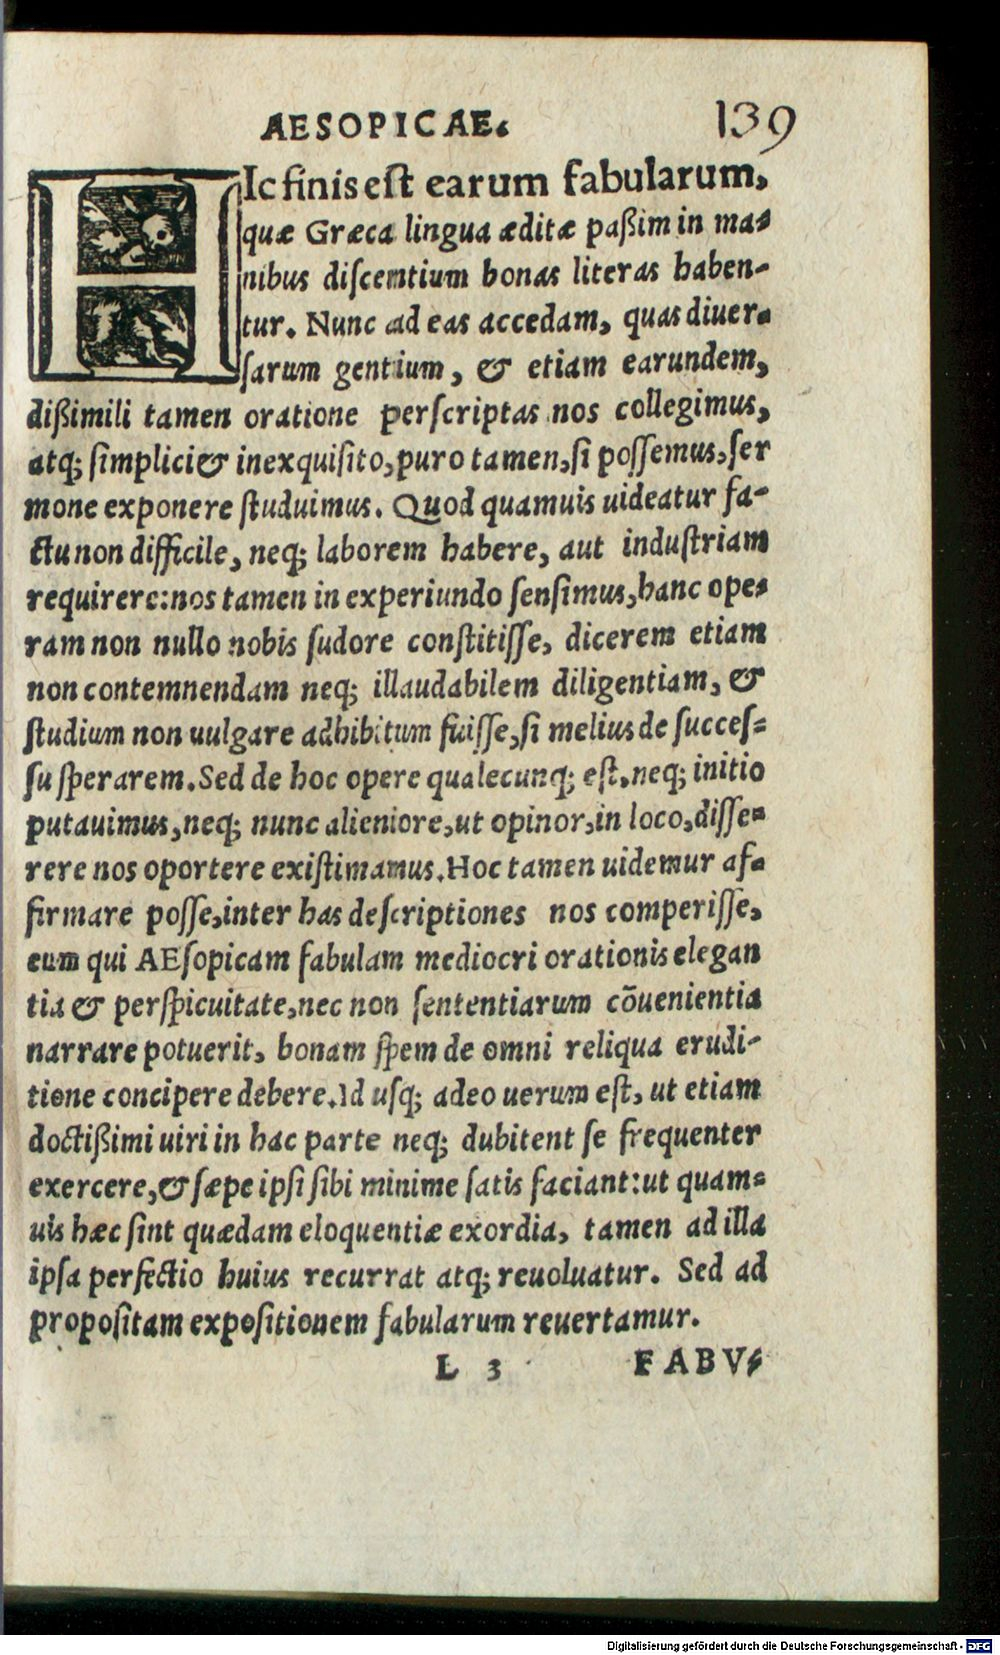 AESOPICAE. 139
HIc finis est earum fabularum,
quæ Græca lingua æditæ paßim in ma-
nibus discentium bonas literas haben-
tur. Nunc ad eas accedam, quas diuer-
sarum gentium, & etiam earundem,
dißimili tamen oratione perscriptas nos collegimus,
atq; simplici & inexquisito, puro tamen, si possemus, ser
mone exponere studuimus. Quod quamuis uideatur fa-
ctu non difficile, neq; laborem habere, aut industriam
requirere: nos tamen in experiundo sensimus, hanc ope-
ram non nullo nobis sudore constitisse, dicerem etiam
non contemnendam neq; illaudabilem diligentiam, &
studium non uulgare adhibitum fuisse, si melius de succes-
su sperarem. Sed de hoc opere qualecunq; est, neq; initio
putauimus, neq; nunc alieniore, ut opinor, in loco, disse-
rere nos oportere existimamus. Hoc tamen uidemur af-
firmare posse, inter has descriptiones nos comperisse,
eum qui AEsopicam fabulam mediocri orationis elegan
tia & perspicuitate, nec non sententiarum cõuenientia
narrare potuerit, bonam spem de omni reliqua erudi-
tione concipere debere. Id usq; adeo uerum est, ut etiam
doctißimi uiri in hac parte neq; dubitent se frequenter
exercere, & sæpe ipsi sibi minime satis faciant: ut quam-
uis hæc sint quædam eloquentiæ exordia, tamen ad illa
ipsa perfectio huius recurrat atq; reuoluatur. Sed ad
propositam expositionem fabularum reuertamur.
L 3 FABV-
Digitalisierung gefördert durch die Deutsche Forschungsgemeinschaft - DFG